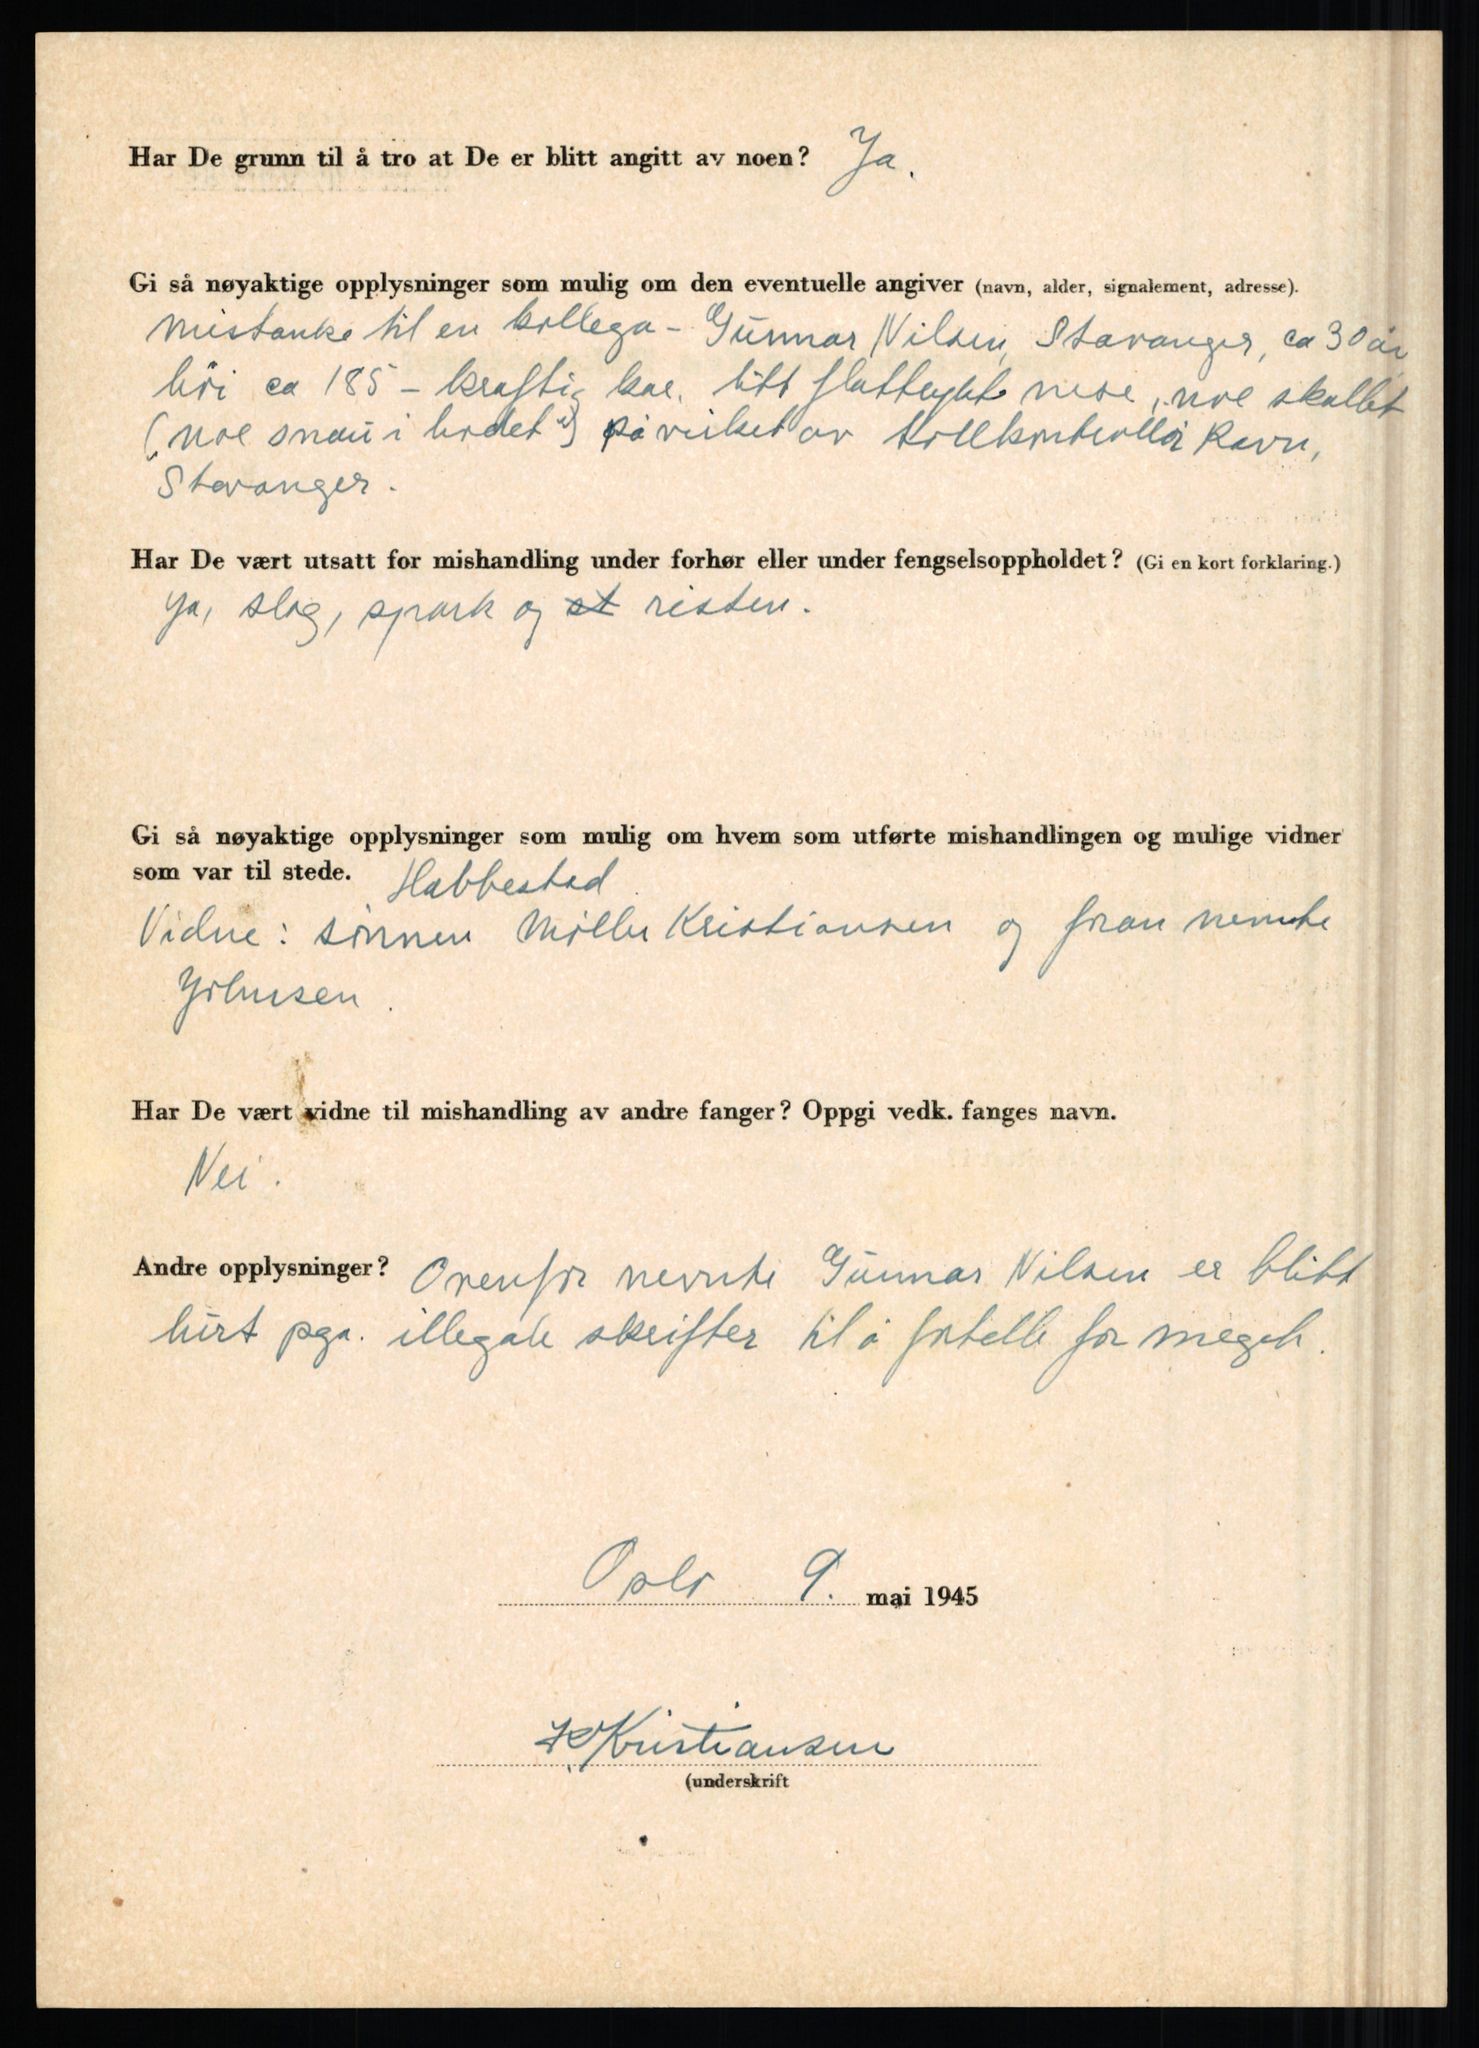 Har De grunn til å tro at De er blitt angitt av noen? Ja.
Gi så nøyaktige opplysninger som mulig om den eventuelle angiver (navn, alder, signalement, adresse).
Mistanke til en kollega – Gunnar Nilsen, Stavanger, ca 30 år
höi ca 185 – kraftig kar. litt flattrykt nese, noe skallet
(„noe snau i hodet") påvirket av tollkontrollör Ravn,
Stavanger.
Har De vært utsatt for mishandling under forhør eller under fengselsoppholdet? (Gi en kort forklaring.)
Ja, slag, spark og st risten.
Gi så nøyaktige opplysninger som mulig om hvem som utførte mishandlingen og mulige vidner
som var til stede. Habbestad.
Vidne: sönnen Möller Kristiansen og foran nevnte
Johnsen.
Har De vært vidne til mishandling av andre fanger? Oppgi vedk. fanges navn.
Nei.
Andre opplysninger? Ovenfor nevnte Gunnar Nilsen er blitt
hirt pga. illegale skrifter til å fortelle for meget.
Oslo 9. mai 1945
Kristiansen
(underskrift